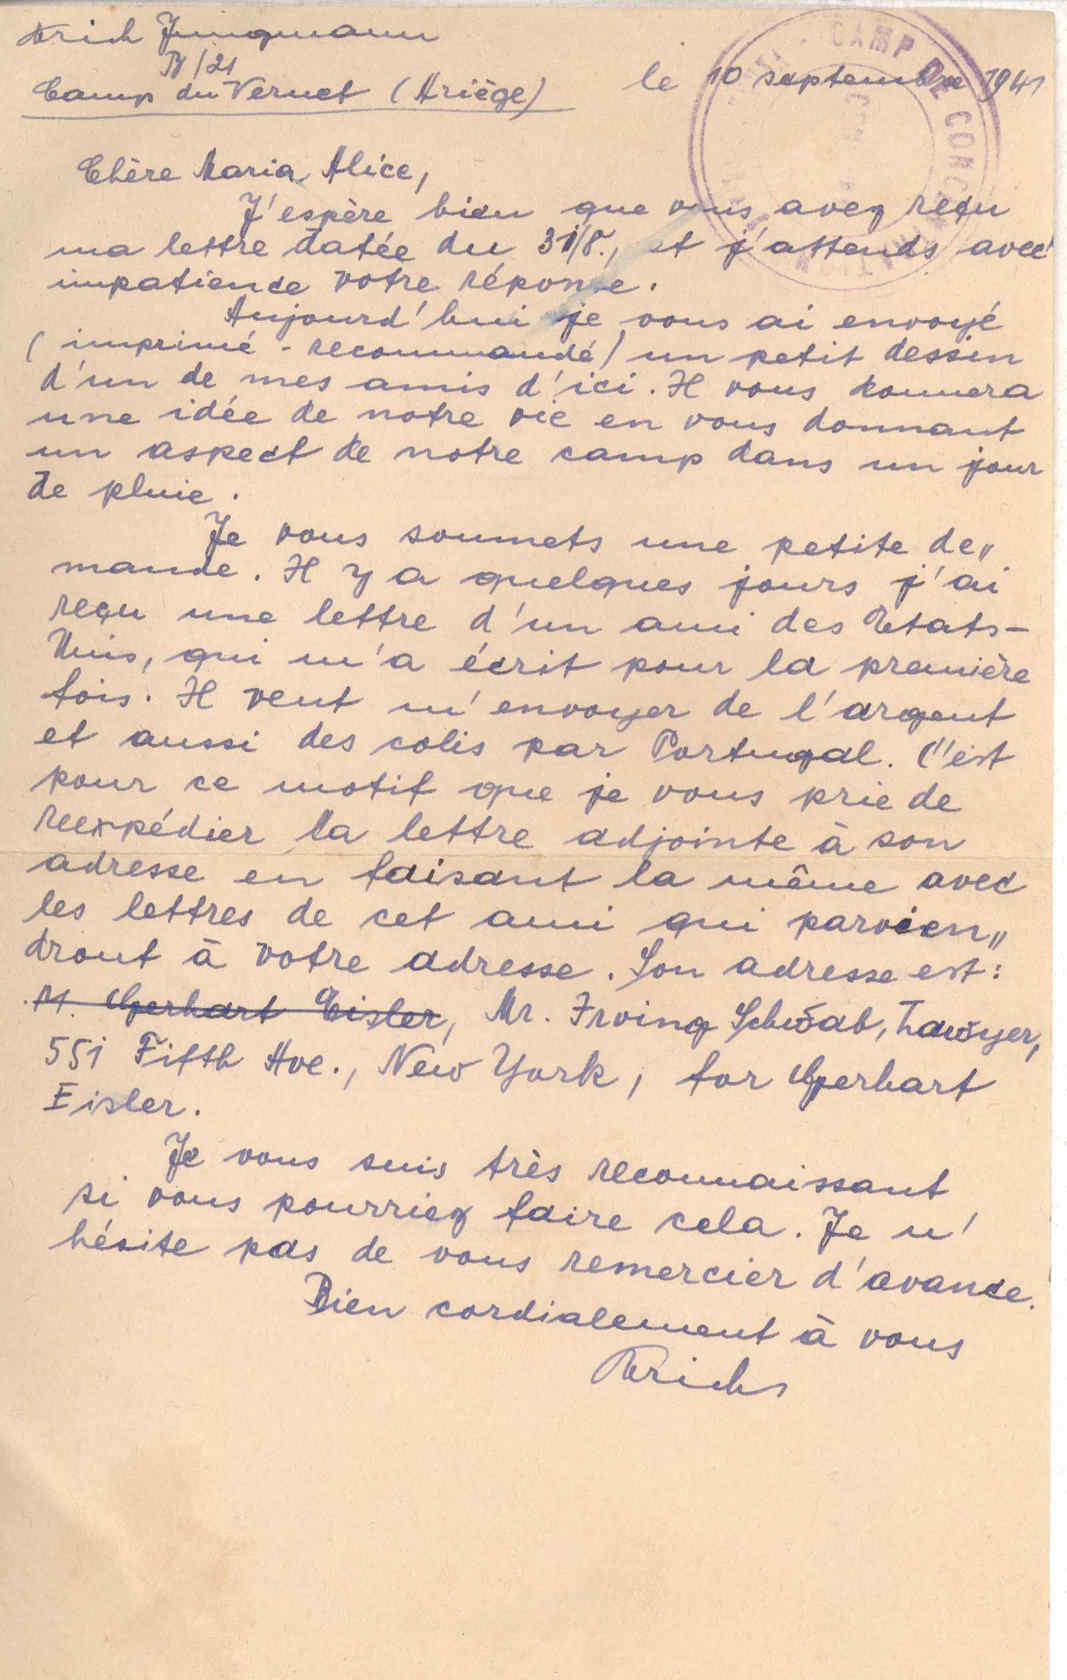 Erich Jungmann
B/21
Camp du Vernet (Ariège)
le 10 septembre 1941
CAMP DE CONCENTRATION
Chère Maria Alice,
J'espère bien que vous avez reçu
ma lettre datée du 31/8., et j'attends avec
impatience votre réponse.
Aujourd'hui je vous ai envoyé
(imprimé - recommandé) un petit dessin
d'un de mes amis d'ici. Il vous donnera
une idée de notre vie en vous donnant
un aspect de notre camp dans un jour
de pluie.
Je vous soumets une petite de„
mande. Il y a quelques jours j'ai
reçu une lettre d'un ami des Etats-
Unis, qui m'a écrit pour la première
fois. Il veut m'envoyer de l'argent
et aussi des colis par Portugal. C'est
pour ce motif que je vous prie de
reexpédier la lettre adjointe à son
adresse en faisant la même avec
les lettres de cet ami qui parvien„
dront à votre adresse. Son adresse est:
M. Gerhart Eisler, Mr. Irving Schwab, Lawyer,
551 Fifth Ave., New York, for Gerhart
Eisler.
Je vous suis très reconnaissant
si vous pourriez faire cela. Je n'
hésite pas de vous remercier d'avance.
Bien cordialement à vous
Erich